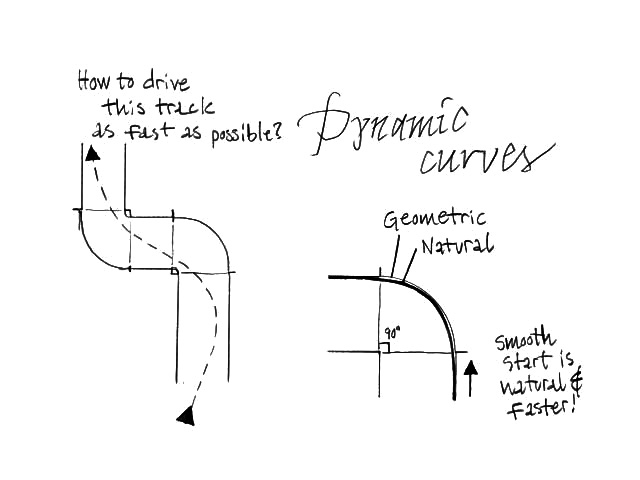 How to drive
this track
as fast as possible?
Dynamic
curves
Geometric
Natural
90°
Smooth
start is
natural &
faster!